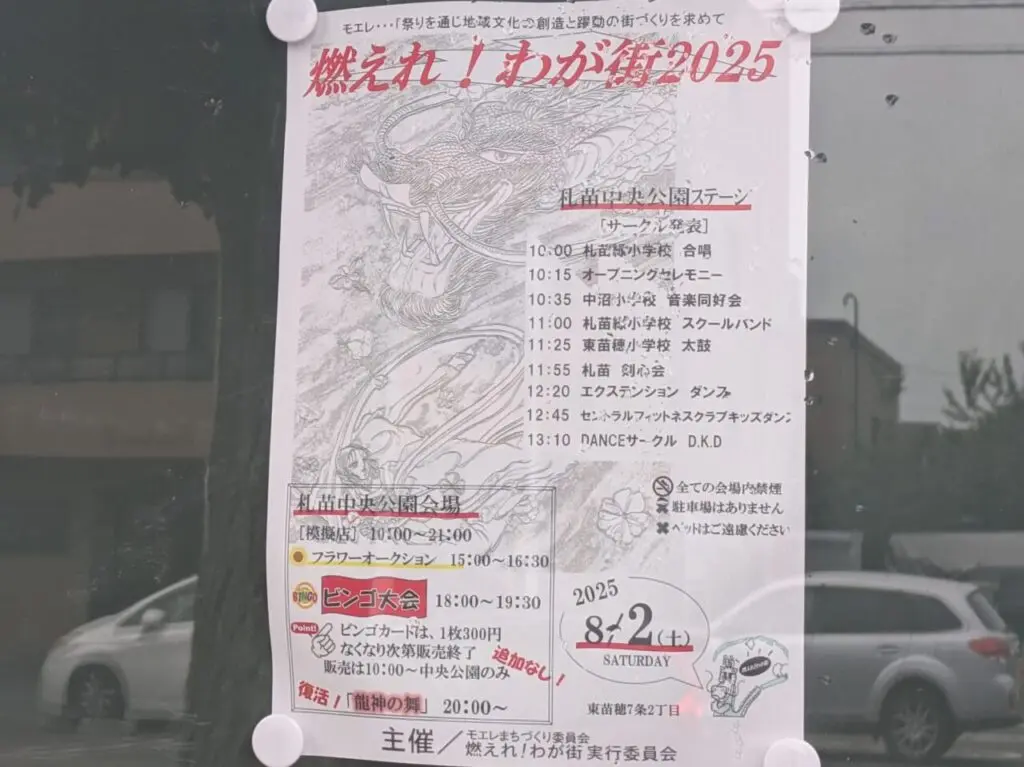 モエレ・・・「祭りを通じ地域文化の創造と躍動の街づくりを求めて
燃えれ！わが街2025
札苗中央公園ステージ
［サークル発表］
10:00 札苗緑小学校 合唱
10:15 オープニングセレモニー
10:35 中沼小学校 音楽同好会
11:00 札苗緑小学校 スクールバンド
11:25 東苗穂小学校 太鼓
11:55 札苗 剣心会
12:20 エクステンション ダンス
12:45 セントラルフィットネスクラブキッズダンス
13:10 DANCEサークル D.K.D
全ての会場内禁煙
駐車場はありません
ペットはご遠慮ください
札苗中央公園会場
［模擬店］ 10:00～21:00
フラワーオークション 15:00～16:30
BINGO
ビンゴ大会 18:00～19:30
Point!
ビンゴカードは、1枚300円
なくなり次第販売終了
追加なし！
販売は10:00～中央公園のみ
復活！「龍神の舞」 20:00～
2025
8/2（土）
SATURDAY
東苗穂7条2丁目
主催／モエレまちづくり委員会
燃えれ！わが街 実行委員会